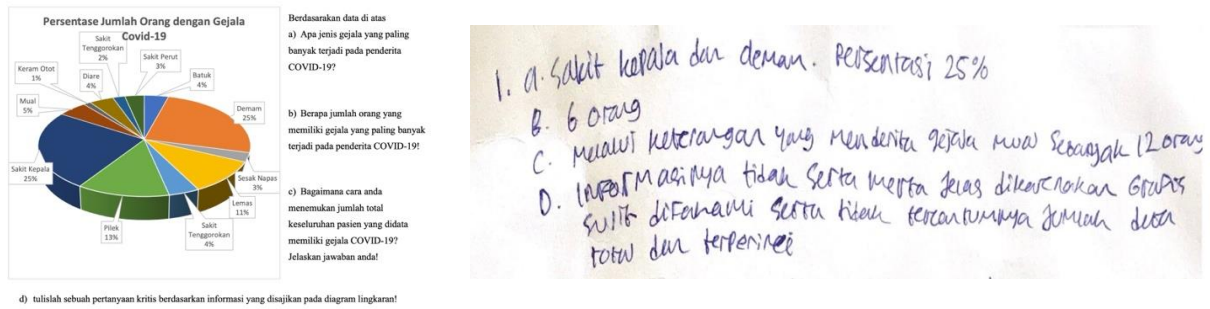 Persentase Jumlah Orang dengan Gejala
Covid-19
Sakit
Tenggorokan
2%
Sakit Perut
3%
Keram Otot
1%
Diare
4%
Batuk
4%
Mual
5%
Demam
25%
Sakit Kepala
25%
Sesak Napas
3%
Lemas
11%
Pilek
13%
Sakit
Tenggorokan
4%
Berdasarakan data di atas
a) Apa jenis gejala yang paling
banyak terjadi pada penderita
COVID-19?
b) Berapa jumlah orang yang
memiliki gejala yang paling banyak
terjadi pada penderita COVID-19!
c) Bagaimana cara anda
menemukan jumlah total
keseluruhan pasien yang didata
memiliki gejala COVID-19?
Jelaskan jawaban anda!
d) tulislah sebuah pertanyaan kritis berdasarkan informasi yang disajikan pada diagram lingkaran!
1. a. Sakit kepala dan demam. Persentasi 25%
B. 6 orang
C. Melalui keterangan yang menderita gejala mual sebanyak 12 orang
D. Informasinya tidak serta merta jelas dikarenakan Grafis
sulit difahami serta tidak tercantumnya jumlah data
total dan terperinci